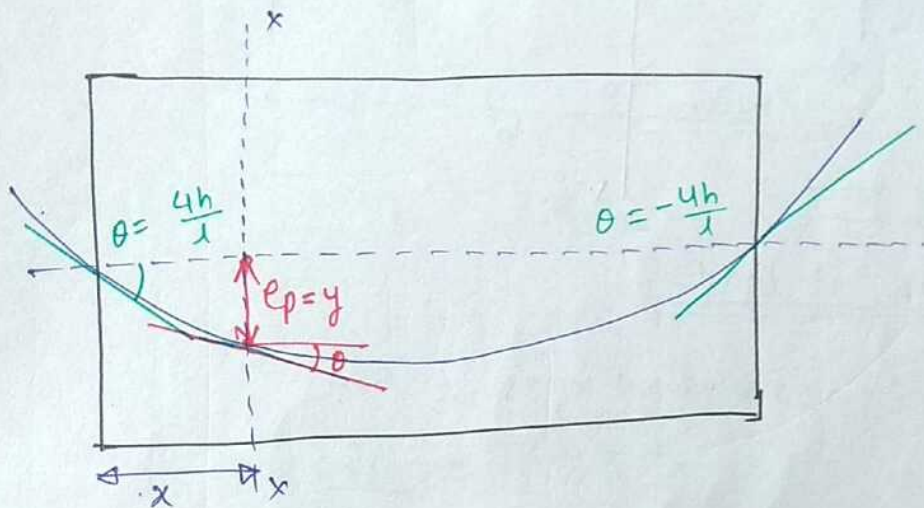 x
θ = 4h/l
θ = -4h/l
ep = y
θ
x
x